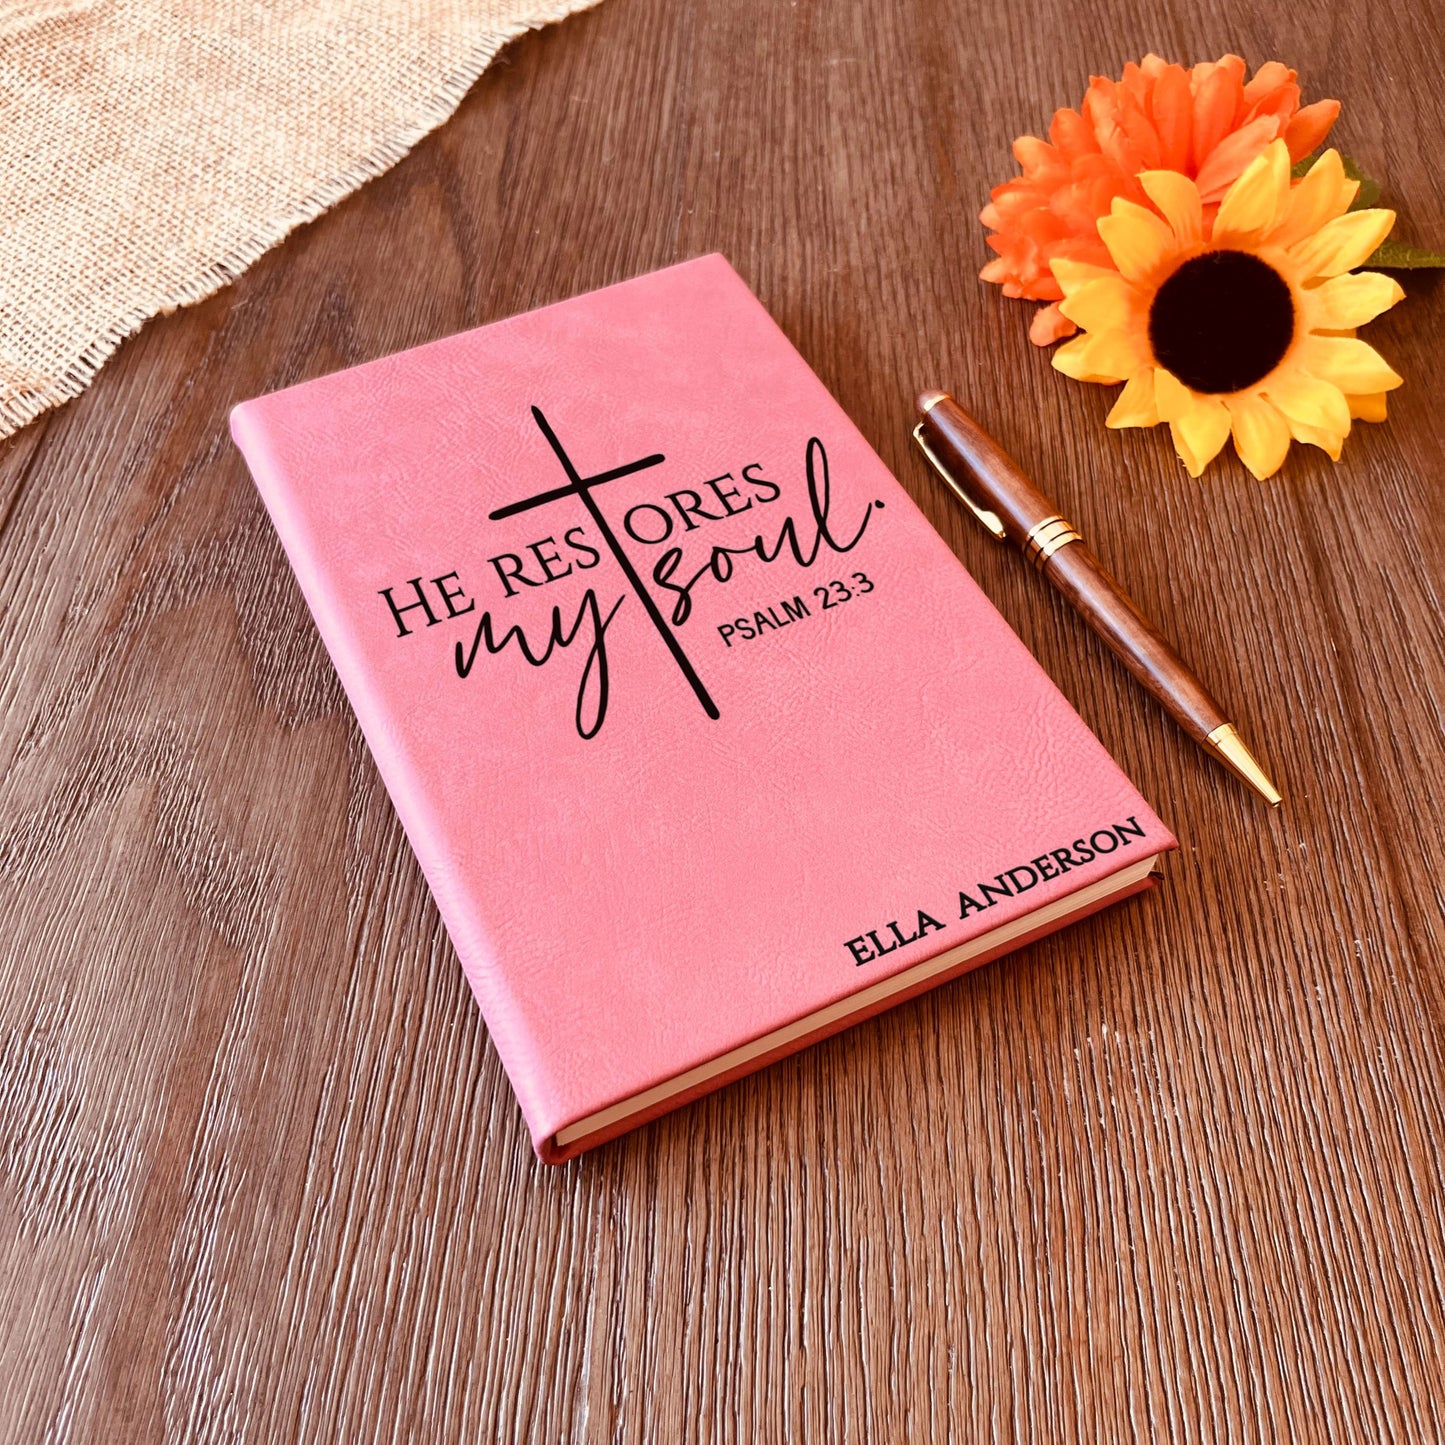 He restores
my soul.
PSALM 23:3
ELLA ANDERSON